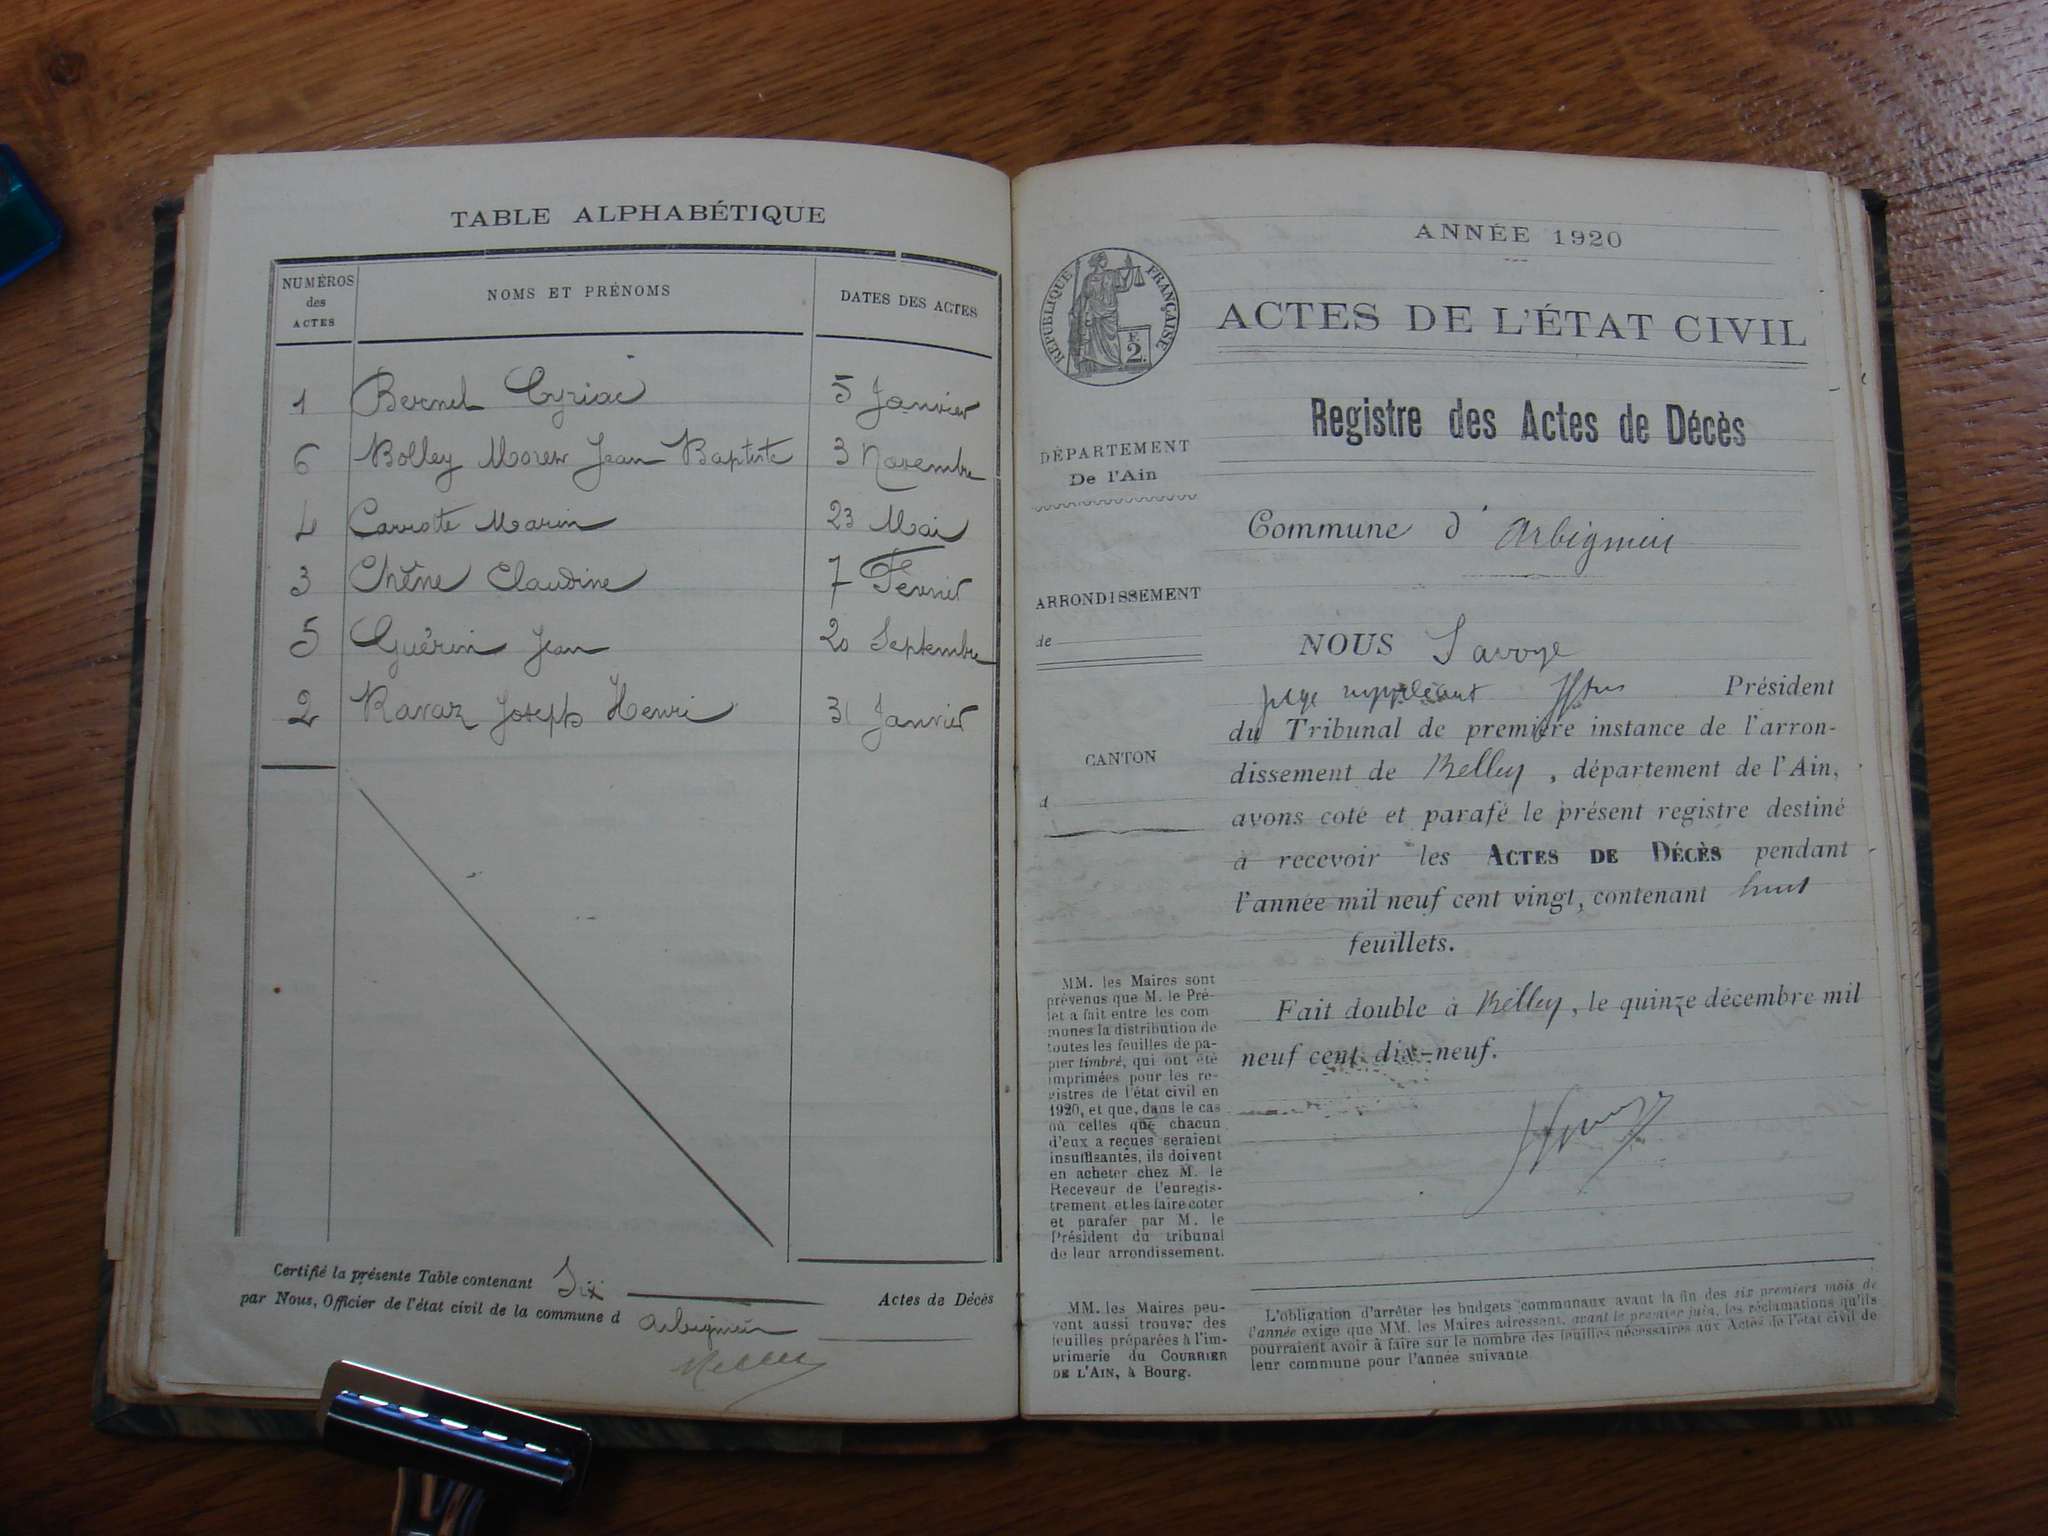 TABLE ALPHABÉTIQUE
NUMÉROS des ACTES
NOMS ET PRÉNOMS
DATES DES ACTES
1 Bernel Cyriac 5 Janvier
6 Bolley Morex Jean Baptiste 3 Novembre
4 Carrote Marin 23 Mai
3 Chêne Claudine 7 Fevrier
5 Guérin Jean 20 Septembre
2 Ravaz Joseph Henri 31 Janvier
Certifié la présente Table contenant Six Actes de Décès
par Nous, Officier de l'état civil de la commune d Arbignieu
ANNÉE 1920
RÉPUBLIQUE FRANÇAISE
F. 2.
ACTES DE L'ÉTAT CIVIL
Registre des Actes de Décès
DÉPARTEMENT
De l'Ain
Commune d' Arbignieu
ARRONDISSEMENT
de
NOUS Savoye
juge suppléant Président
du Tribunal de première instance de l'arron-
CANTON
d
dissement de Belley, département de l'Ain,
avons coté et parafé le présent registre destiné
à recevoir les ACTES DE DÉCÈS pendant
l'année mil neuf cent vingt, contenant huit
feuillets.
Fait double à Belley, le quinze décembre mil
neuf cent dix-neuf.
MM. les Maires sont
prévenus que M. le Pré-
fet a fait entre les com
munes la distribution de
toutes les feuilles de pa-
pier timbré, qui ont été
imprimées pour les re-
gistres de l'état civil en
1920, et que, dans le cas
où celles que chacun
d'eux a reçues seraient
insuffisantes, ils doivent
en acheter chez M. le
Receveur de l'enregis-
trement et les faire coter
et parafer par M. le
Président du tribunal
de leur arrondissement.
MM. les Maires peu-
vent aussi trouver des
feuilles préparées à l'im-
primerie du COURRIER
DE L'AIN, à Bourg.
L'obligation d'arrêter les budgets communaux avant la fin des six premiers mois de
l'année exige que MM. les Maires adressent, avant le premier juin, les réclamations qu'ils
pourraient avoir à faire sur le nombre des feuilles nécessaires aux Actes de l'état civil de
leur commune pour l'année suivante